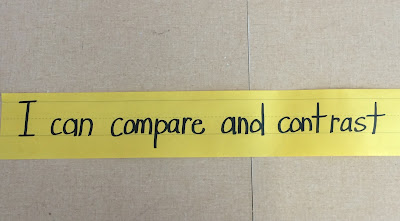 I can compare and contrast